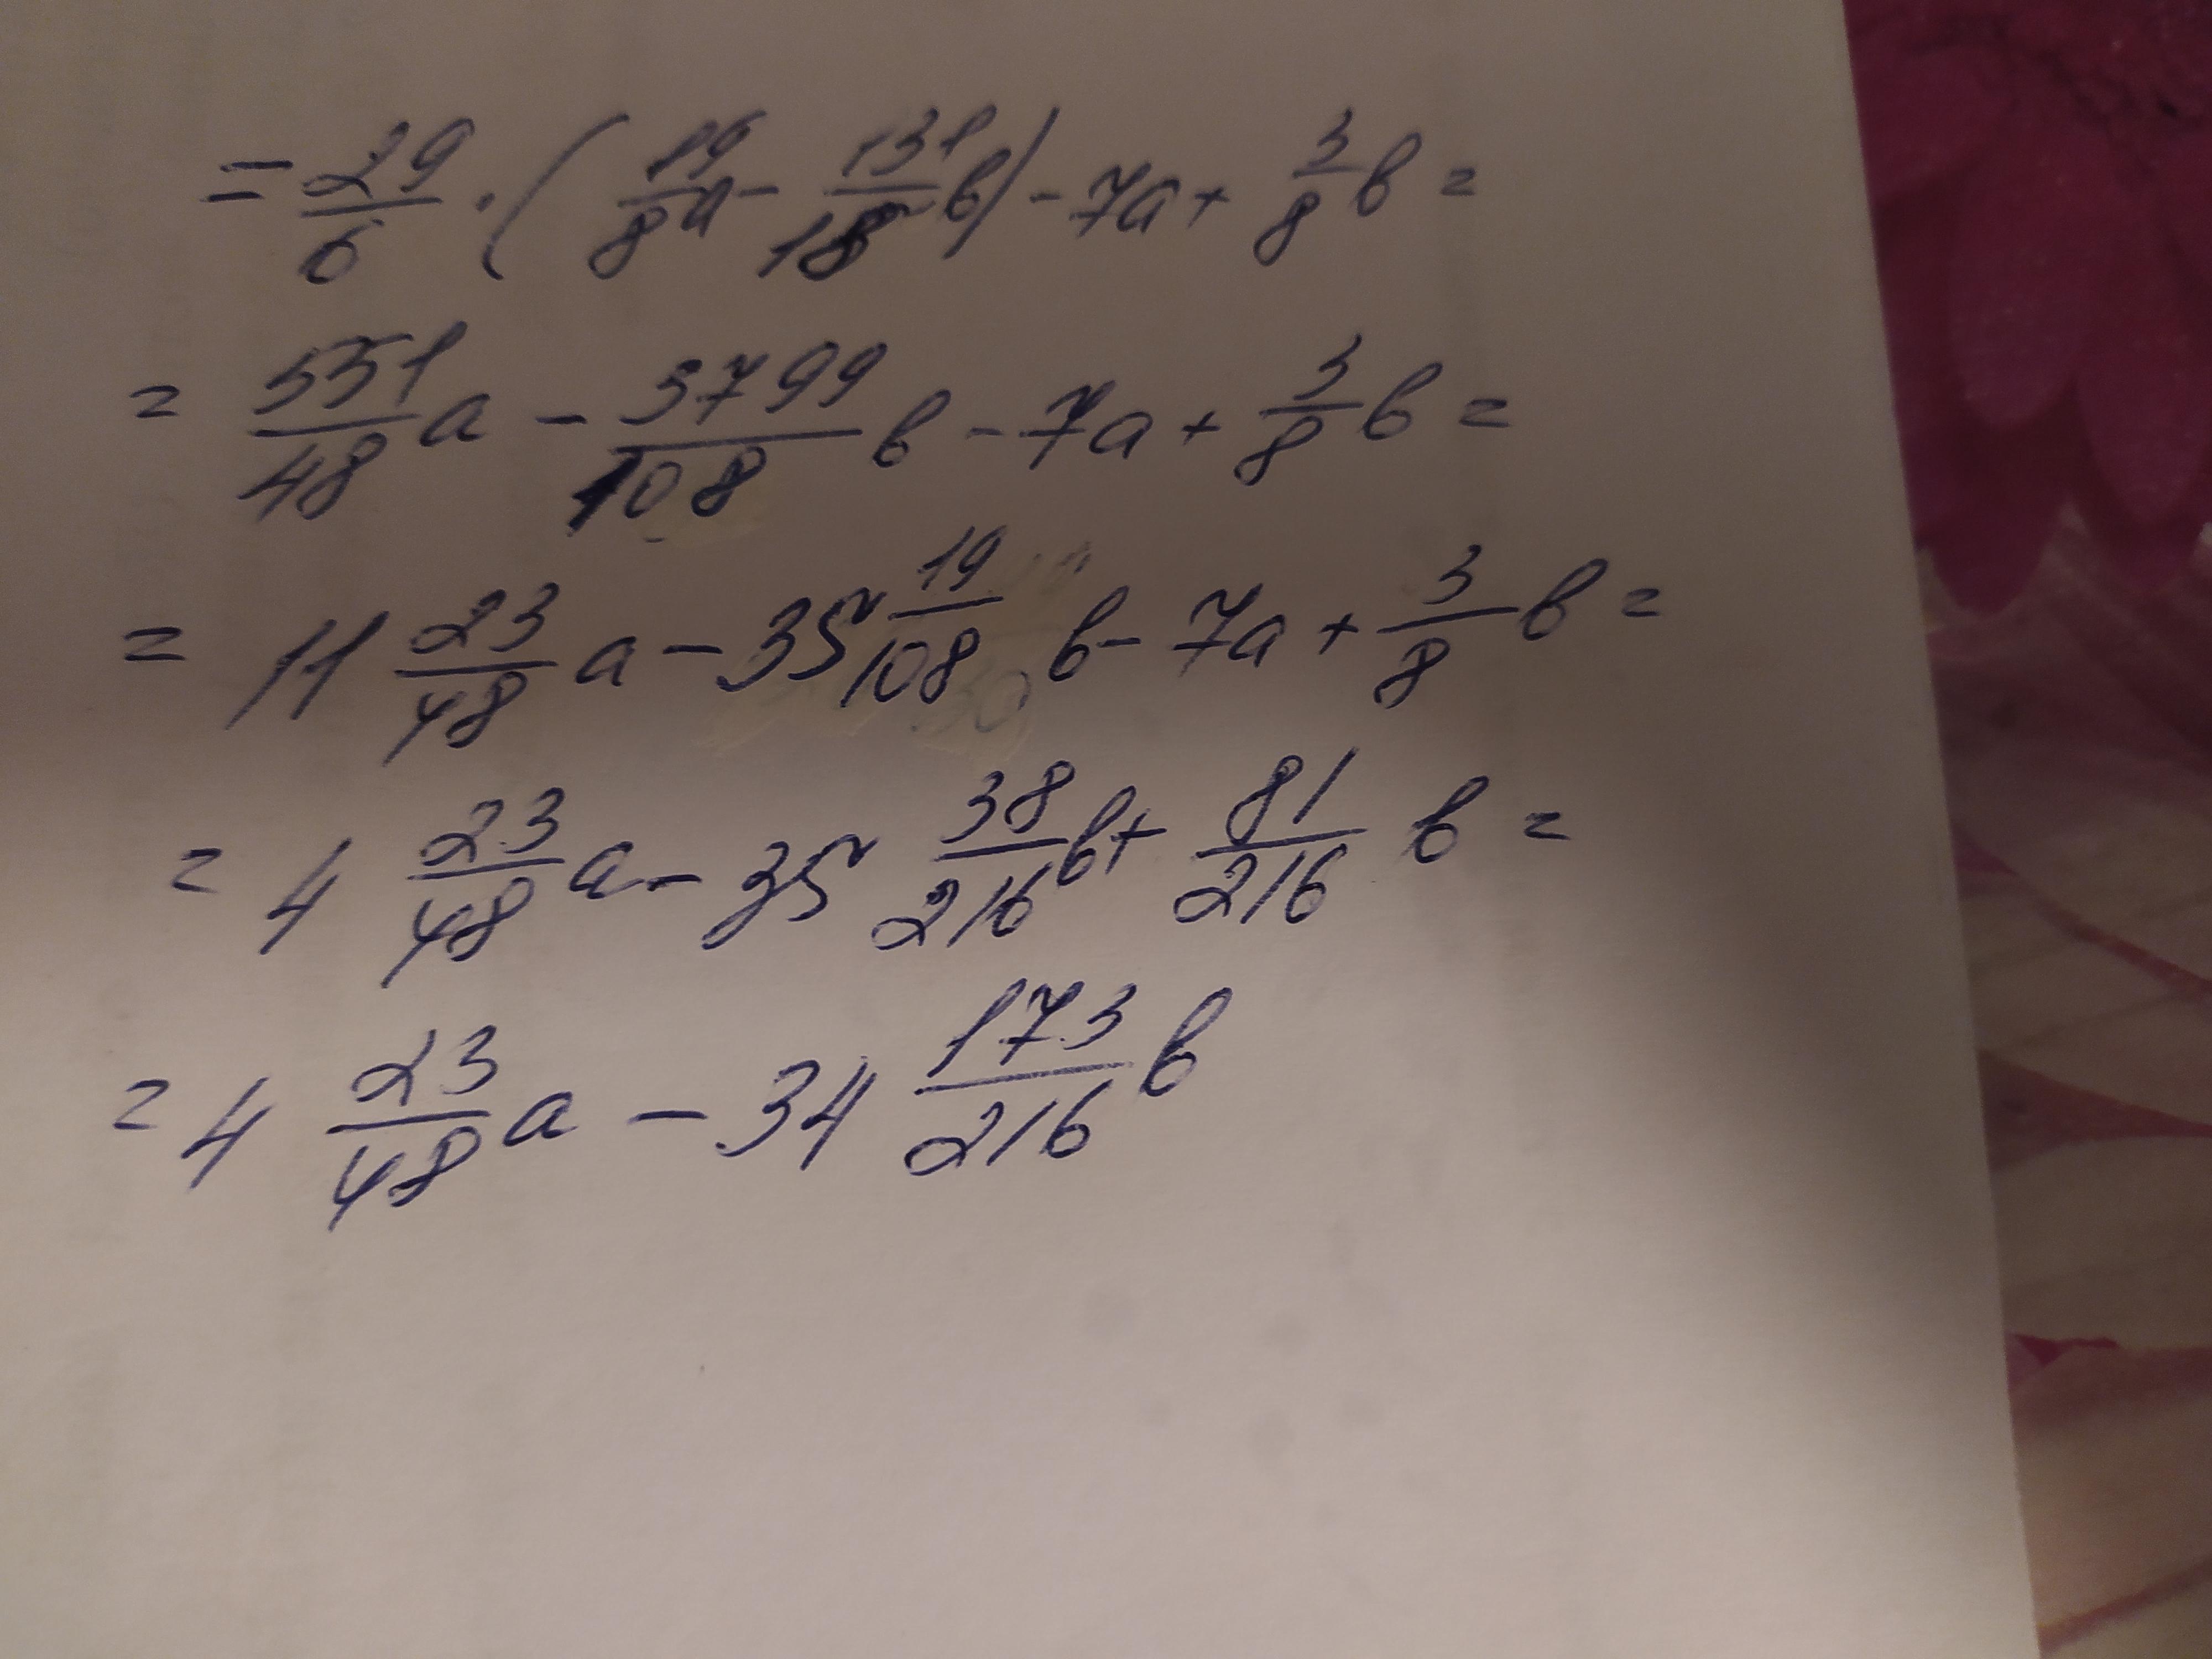 = 29/6 · (19/8 a - 131/18 b) - 7a + 3/8 b =
= 551/48 a - 3799/108 b - 7a + 3/8 b =
= 11 23/48 a - 35 19/108 b - 7a + 3/8 b =
= 4 23/48 a - 35 38/216 b + 81/216 b =
= 4 23/48 a - 34 173/216 b